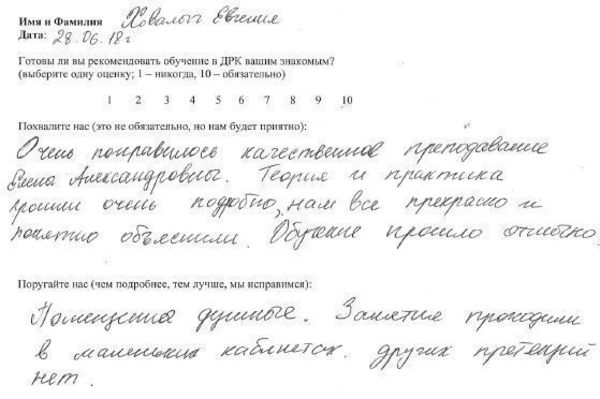 Имя и Фамилия Ховалыг Евгения
Дата: 28.06.18г
Готовы ли вы рекомендовать обучение в ДРК вашим знакомым?
(выберите одну оценку; 1 – никогда, 10 – обязательно)
1 2 3 4 5 6 7 8 9 10
Похвалите нас (это не обязательно, но нам будет приятно):
Очень понравилось качественное преподавание
Елены Александровны. Теория и практика
прошли очень подробно, нам все прекрасно и
понятно объяснили. Обучение прошло отлично.
Поругайте нас (чем подробнее, тем лучше, мы исправимся):
Помещения душные. Занятия проходили
в маленьких кабинетах. других претензий
нет.